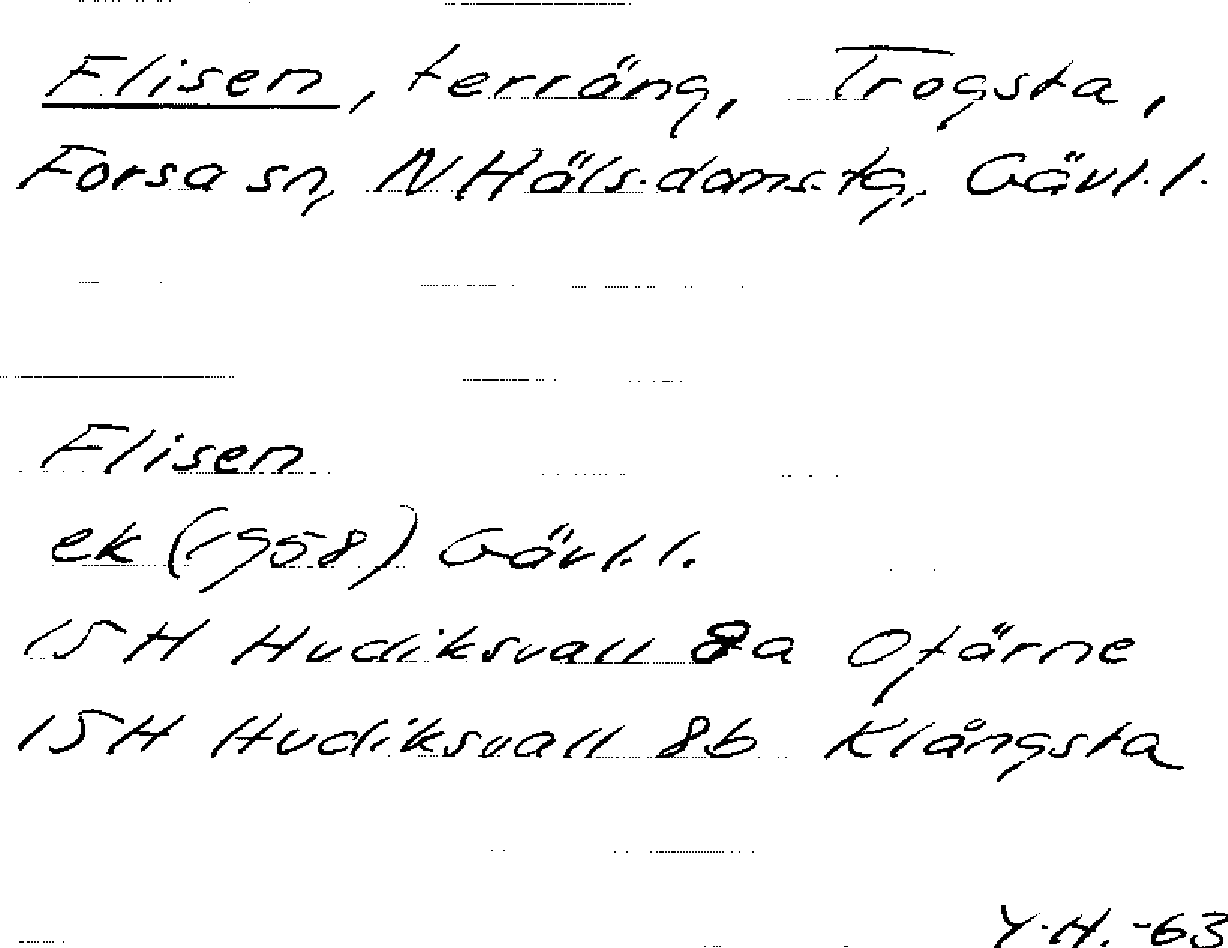 Elisen, terräng, Trogsta,
Forsa sn, N Häls. doms. tg, Gävl. l.
Elisen
ek (1958) Gävl. l.
15H Hudiksvall 8a Ofärne
15H Hudiksvall 8b Klångsta
Y.H. -63